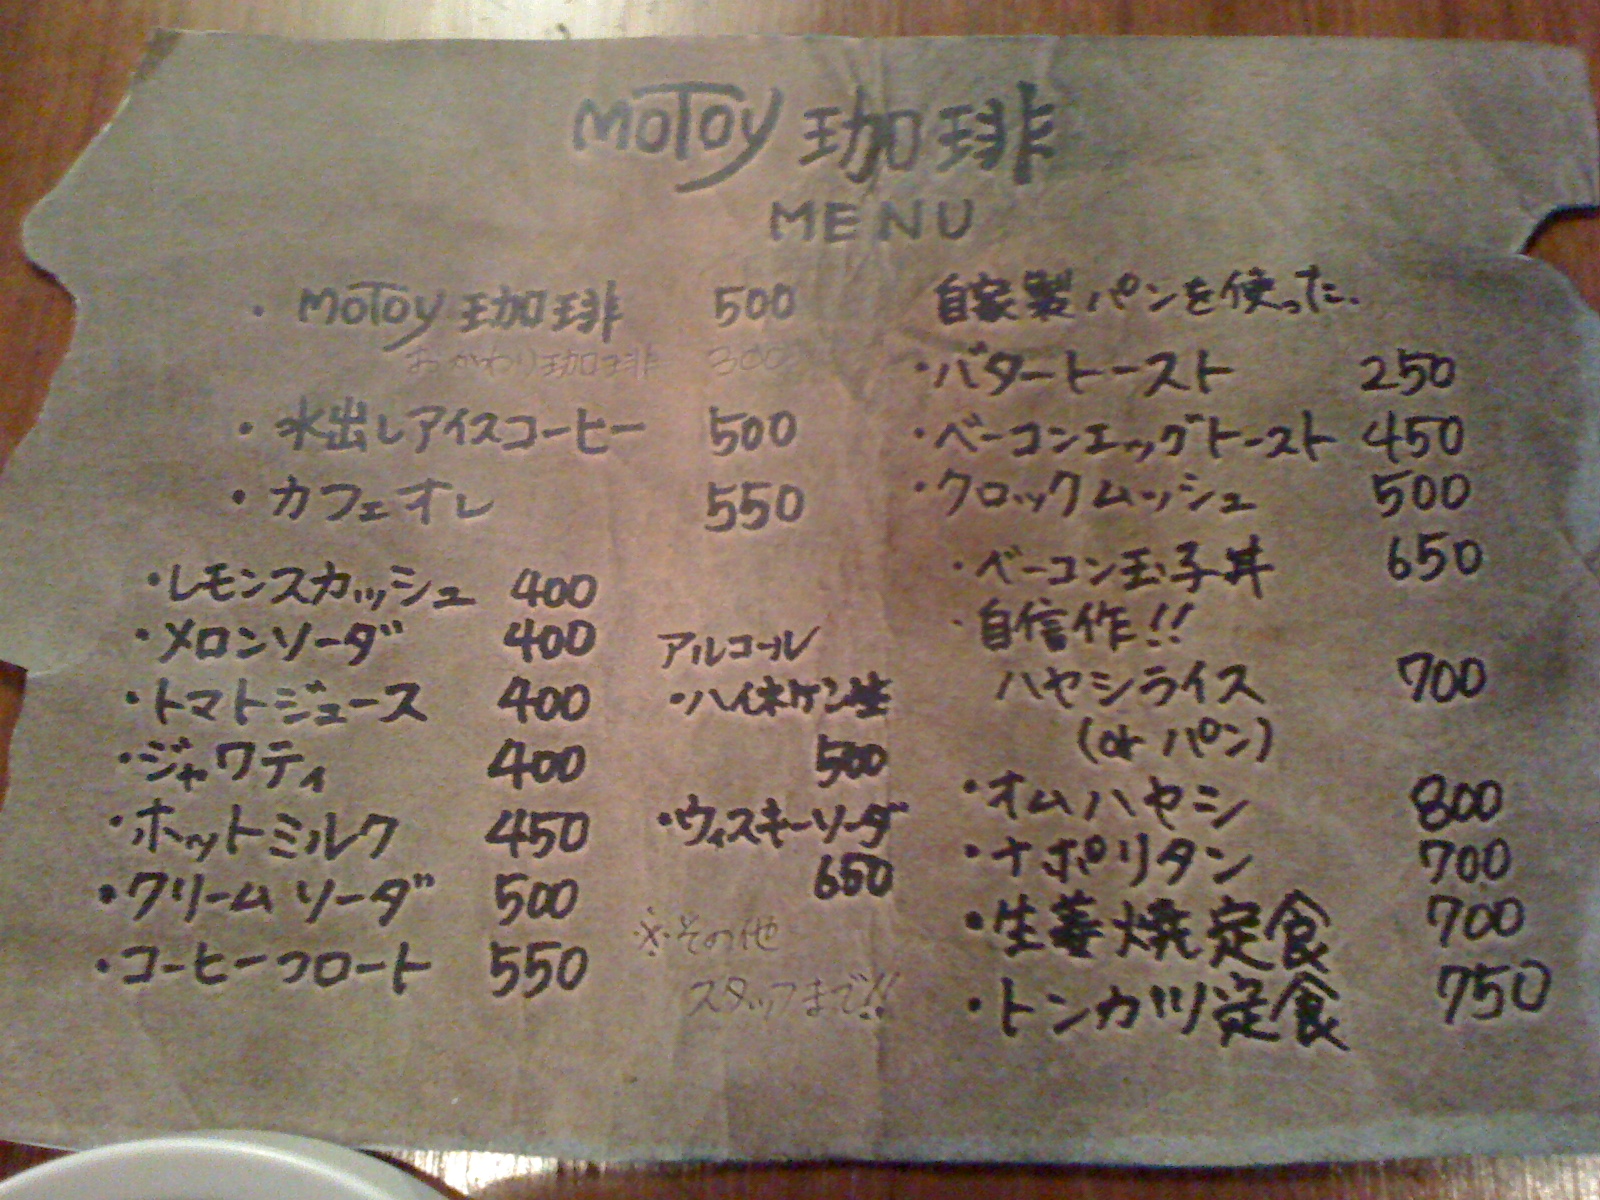 MOTOY 珈琲
MENU
・MOTOY 珈琲 500
おかわり珈琲 300
・水出しアイスコーヒー 500
・カフェオレ 550
・レモンスカッシュ 400
・メロンソーダ 400
・トマトジュース 400
・ジャワティ 400
・ホットミルク 450
・クリームソーダ 500
・コーヒーフロート 550
アルコール
・ハイネケン生
500
・ウィスキーソーダ
650
※その他
スタッフまで!!
自家製パンを使った、
・バタートースト 250
・ベーコンエッグトースト 450
・クロックムッシュ 500
・ベーコン玉子丼 650
・自信作!!
ハヤシライス 700
(or パン)
・オムハヤシ 800
・ナポリタン 700
・生姜焼定食 700
・トンカツ定食 750